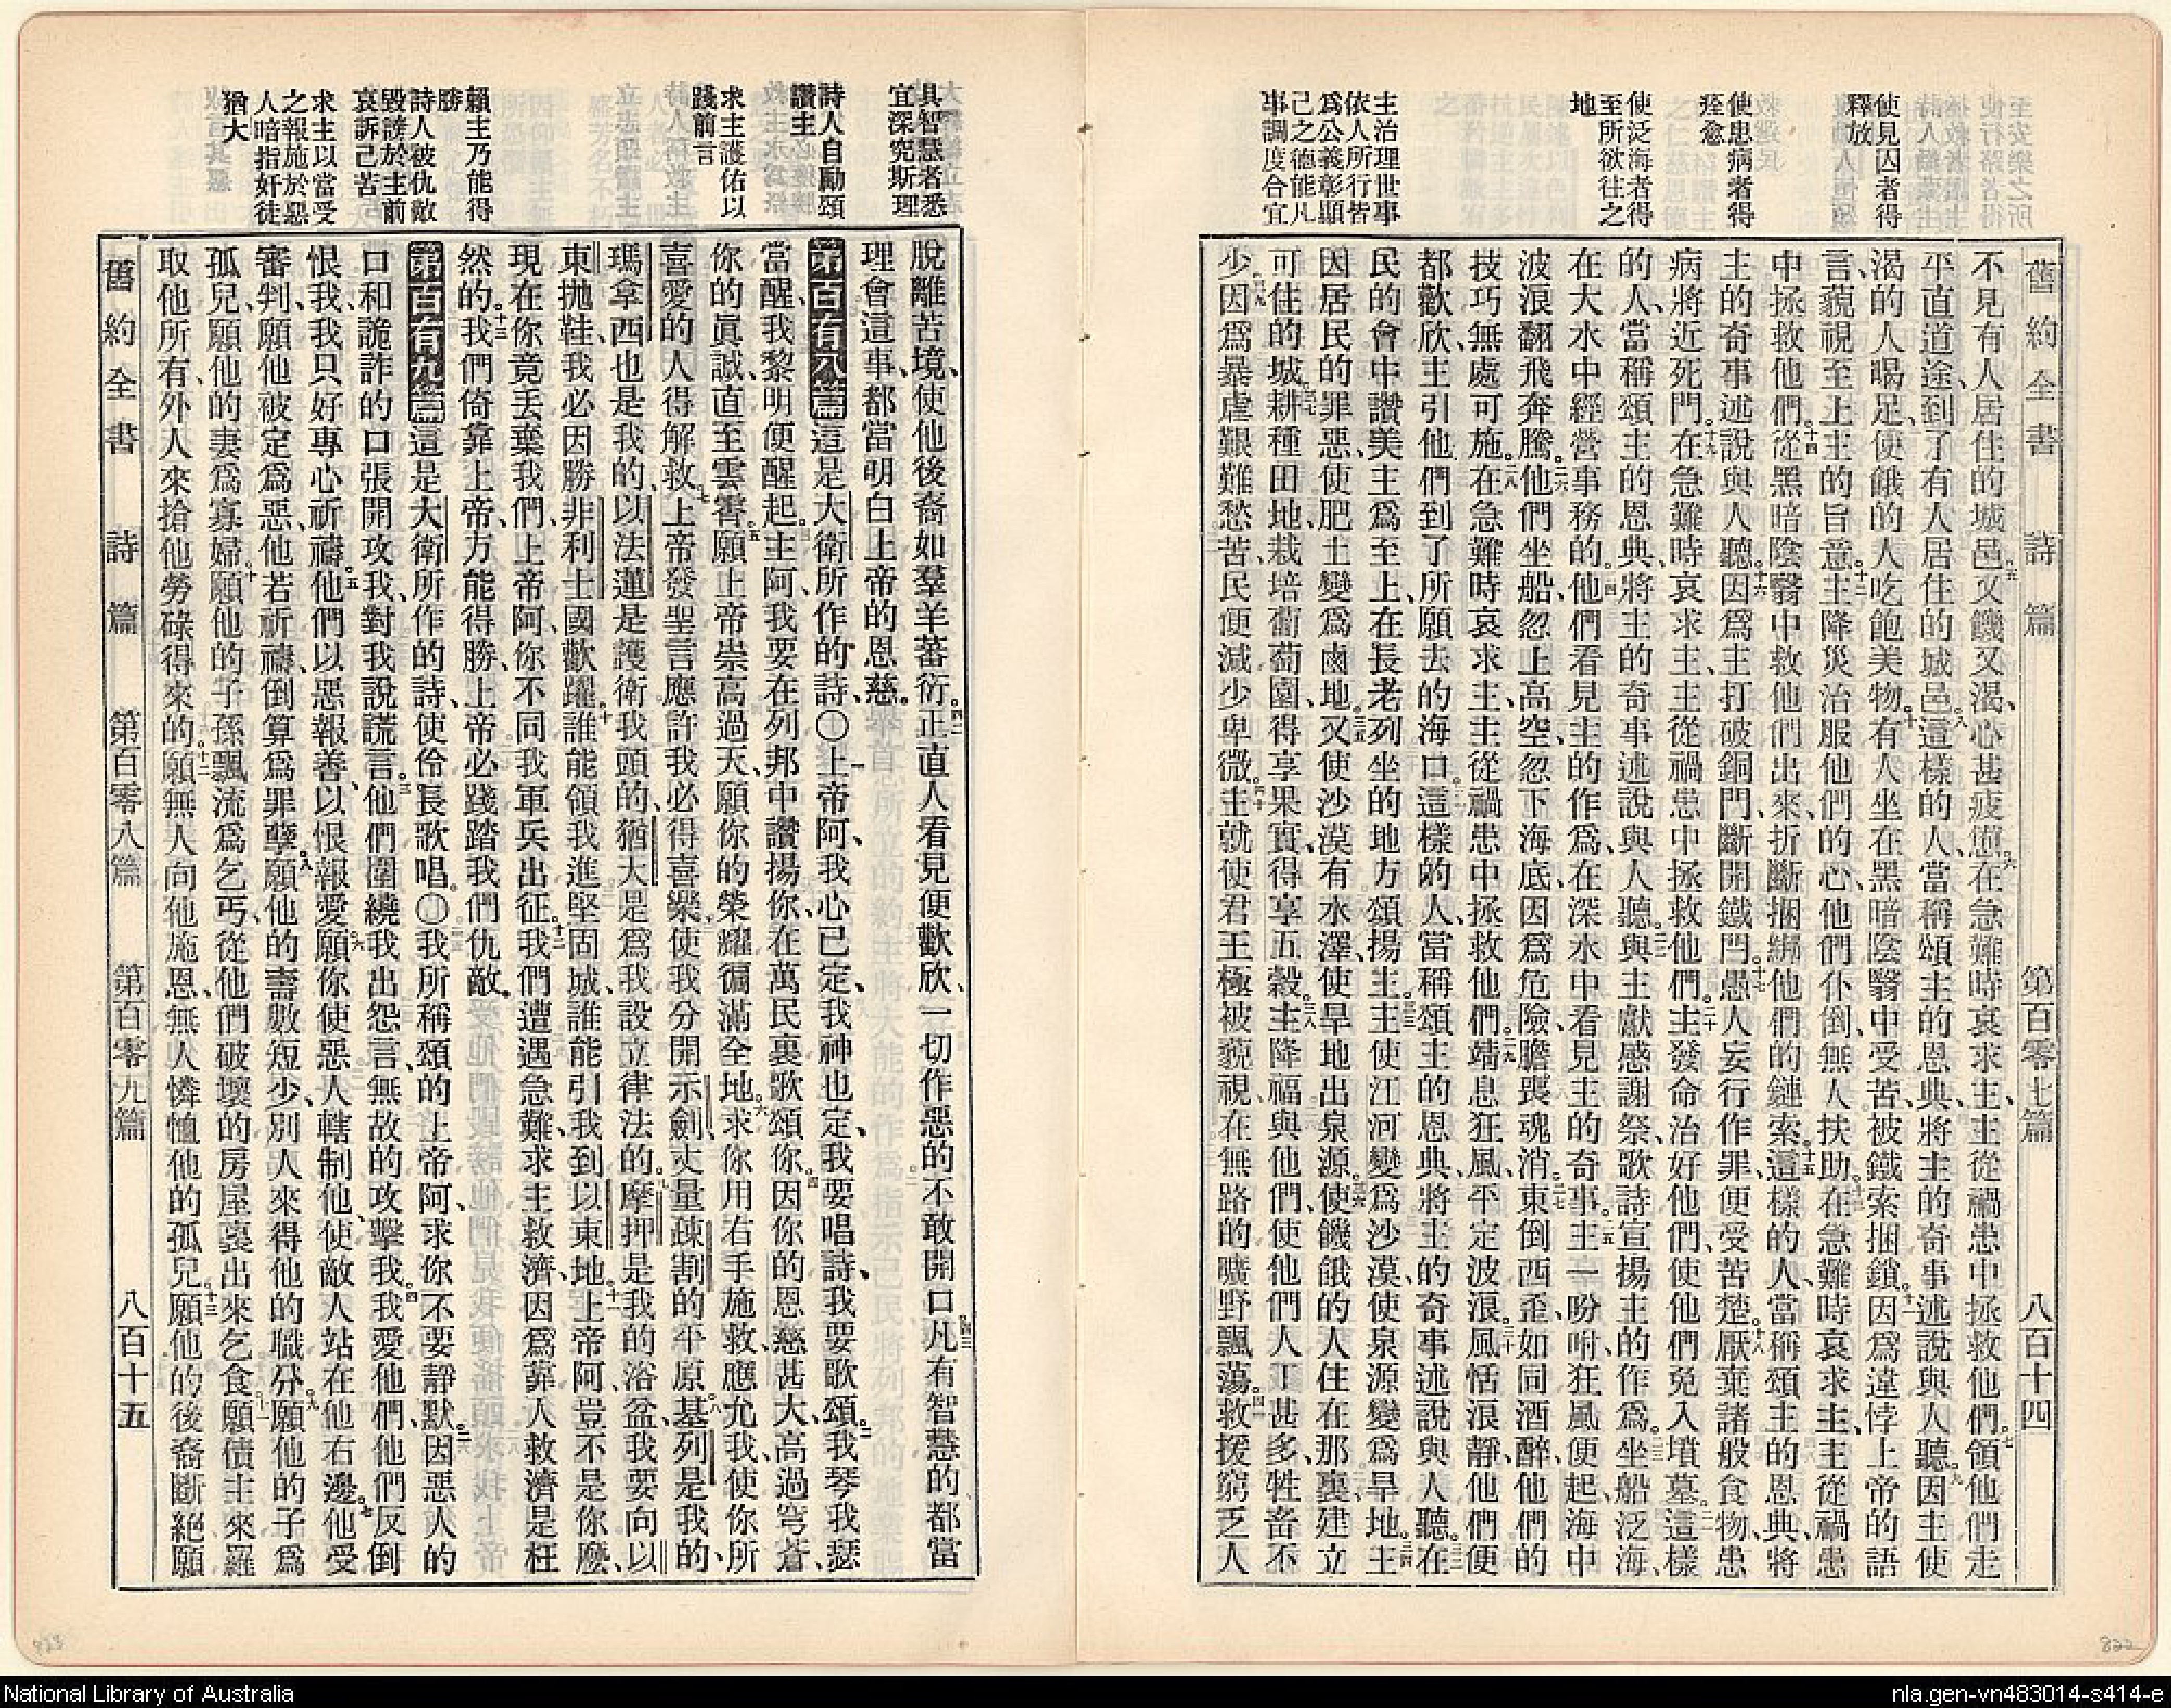 舊約全書 詩篇 第百零七篇 八百十四
使見囚者得
釋放
使患病者得
痊愈
使泛海者得
至所欲往之
地
主治理世事
依人所行皆
爲公義彰顯
己之德能凡
事調度合宜
不見有人居住的城邑、五又饑又渴、心甚疲憊。六在急難時哀求主、主從禍患中拯救他們。七領他們走
平直道途、到了有人居住的城邑。八這樣的人、當稱頌主的恩典、將主的奇事述說與人聽。九因主使
渴的人喝足、使餓的人吃飽美物。十有人坐在黑暗陰翳中受苦、被鐵索捆鎖。十一因爲違悖上帝的語
言、藐視至上主的旨意。十二主降災治服他們的心、他們仆倒、無人扶助。十三在急難時哀求主、主從禍患
中拯救他們。十四從黑暗陰翳中救他們出來、折斷捆綁他們的鏈索。十五這樣的人、當稱頌主的恩典、將
主的奇事述說與人聽。十六因爲主打破銅門、斷開鐵閂。十七愚人妄行作罪、便受苦楚。十八厭棄諸般食物、患
病將近死門。十九在急難時哀求主、主從禍患中拯救他們。二十主發命治好他們、使他們免入墳墓。二一這樣
的人、當稱頌主的恩典、將主的奇事述說與人聽。二二與主獻感謝祭、歌詩宣揚主的作爲。二三坐船泛海、
在大水中經營事務的。二四他們看見主的作爲、在深水中看見主的奇事。二五主一吩咐、狂風便起、海中
波浪翻飛奔騰。二六他們坐船、忽上高空、忽下海底、因爲危險、膽喪魂消。二七東倒西歪、如同酒醉、他們的
技巧無處可施。二八在急難時哀求主、主從禍患中拯救他們。二九靖息狂風、平定波浪。三十風恬浪靜、他們便
都歡欣、主引他們到了所願去的海口。三一這樣的人、當稱頌主的恩典、將主的奇事述說與人聽。三二在
民的會中讚美主爲至上、在長老列坐的地方頌揚主。三三主使江河變爲沙漠、使泉源變爲旱地。三四主
因居民的罪惡、使肥土變爲鹵地。三五又使沙漠有水澤、使旱地出泉源。三六使饑餓的人住在那裏、建立
可住的城。三七耕種田地、栽培葡萄園、得享果實、得享五穀。三八主降福與他們、使他們人丁甚多、牲畜不
少。三九因爲暴虐艱難愁苦、民便減少卑微。四十主就使君王極被藐視、在無路的曠野飄蕩。四一救援窮乏人
其智慧者悉
宜深究斯理
詩人自勵頌
讚主
求主護佑以
踐前言
賴主乃能得
勝
詩人被仇敵
毀謗於主前
哀訴己苦
求主以當受
之報施於惡
人暗指奸徒
猶大
脫離苦境、使他後裔如羣羊蕃衍。四二正直人看見便歡欣、一切作惡的不敢開口。四三凡有智慧的都當
理會這事、都當明白上帝的恩慈。
第百有八篇 這是大衛所作的詩、〇一上帝阿、我心已定、我神也定、我要唱詩、我要歌頌。二我琴我瑟、
當醒、我黎明便醒起。三主阿、我要在列邦中讚揚你、在萬民裏歌頌你。四因你的恩慈甚大、高過穹蒼、
你的眞誠、直至雲霄。五願上帝崇高過天、願你的榮耀徧滿全地。六求你用右手施救、應允我、使你所
喜愛的人得解救。七上帝發聖言應許我、必得喜樂、使我分開示劍、丈量疎割的平原。八基列是我的、
瑪拿西也是我的、以法蓮是護衛我頭的、猶大是爲我設立律法的。九摩押是我的浴盆、我要向以
東拋鞋、我必因勝非利士國歡躍。十誰能領我進堅固城、誰能引我到以東地。十一上帝阿、豈不是你麼、
現在你竟丟棄我們、上帝阿、你不同我軍兵出征。十二我們遭遇急難、求主救濟、因爲靠人救濟是枉
然的。十三我們倚靠上帝、方能得勝、上帝必踐踏我們仇敵。
第百有九篇 這是大衛所作的詩、使伶長歌唱。〇一我所稱頌的上帝阿、求你不要靜默。二因惡人的
口、和詭詐的口、張開攻我、對我說謊言。三他們圍繞我、出怨言、無故的攻擊我。四我愛他們、他們反倒
恨我、我只好專心祈禱。五他們以惡報善、以恨報愛。六願你使惡人轄制他、使敵人站在他右邊。七他受
審判、願他被定爲惡、他若祈禱、倒算爲罪孽。八願他的壽數短少、別人來得他的職分。九願他的子爲
孤兒、願他的妻爲寡婦。十願他的子孫飄流爲乞丐、從他們破壞的房屋裏出來乞食。十一願債主來羅
取他所有、外人來搶他勞碌得來的。十二願無人向他施恩、無人憐恤他的孤兒。十三願他的後裔斷絕、願
舊約全書 詩篇 第百零八篇 第百零九篇 八百十五
823
822
National Library of Australia
nla.gen-vn483014-s414-e